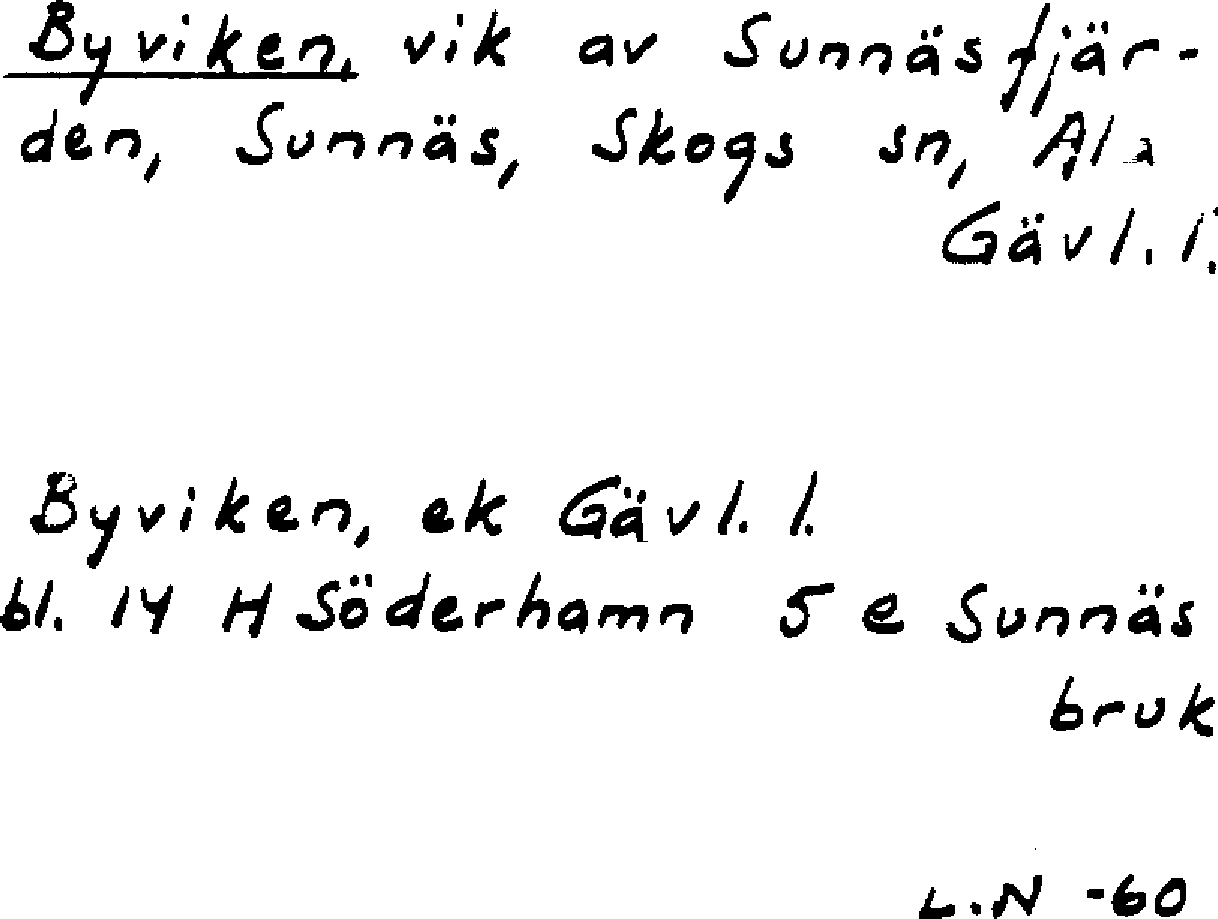 Byviken, vik av Sunnäsfjär-
den, Sunnäs, Skogs sn, Ala
Gävl. l.
Byviken, ek Gävl. l.
bl. 14 H Söderhamn 5 e Sunnäs
bruk
L.N -60